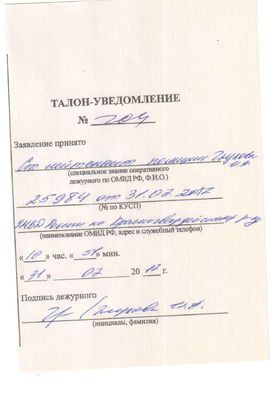 ТАЛОН-УВЕДОМЛЕНИЕ
№ 204
Заявление принято
Ст лейтенант полиции Глухова
(специальное звание оперативного
дежурного по ОМВД РФ, Ф.И.О.)
25984 от 31.07.2017
(№ по КУСП)
УМВД России по Красногвардейскому р-ну
(наименование ОМВД РФ, адрес и служебный телефон)
« 10 » час. « 51 » мин.
« 31 » 07 20 17 г.
Подпись дежурного
(инициалы, фамилия)